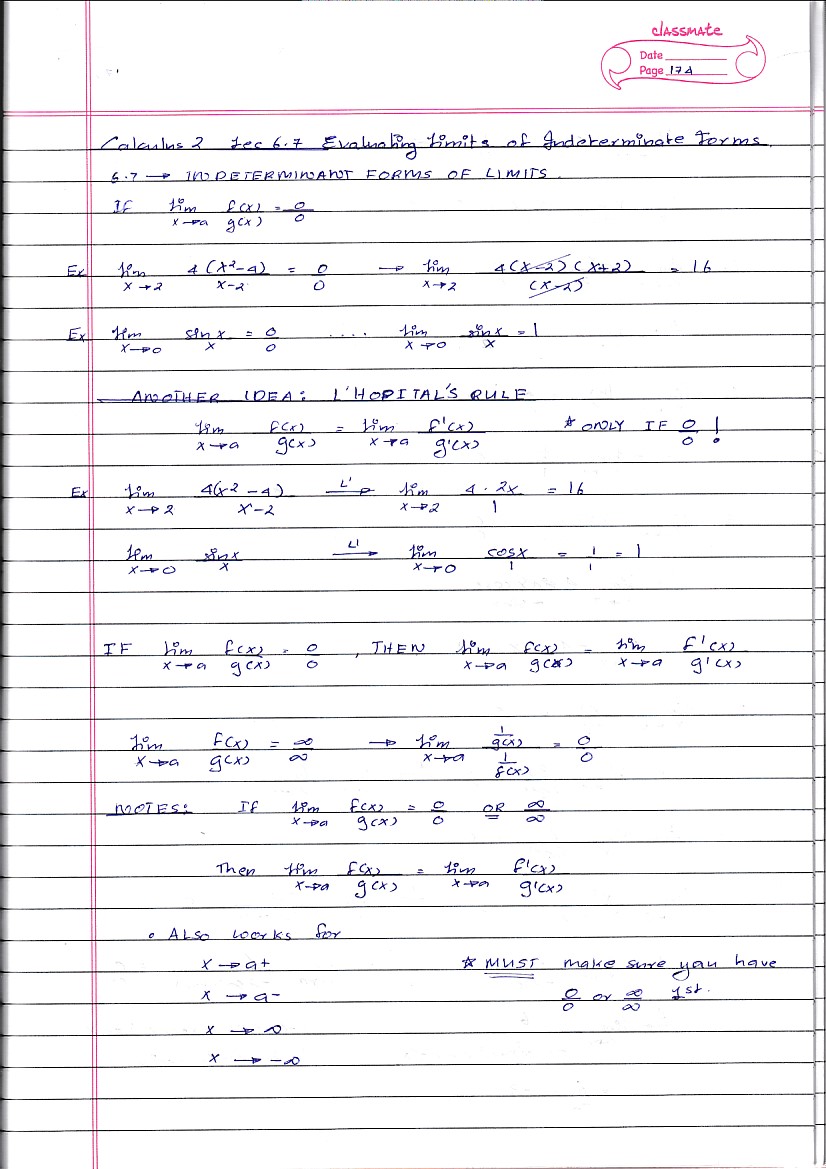 classmate
Date
Page 174
Calculus 2 Lec 6.7 Evaluating Limits of Indeterminate Forms.
6.7 → INDETERMINANT FORMS OF LIMITS.
If lim x→a f(x)/g(x) = 0/0
Ex lim x→2 4(x²-4)/x-2 = 0/0 → lim x→2 4(x-2)(x+2)/(x-2) = 16
Ex lim x→0 sinx/x = 0/0 .... lim x→0 sinx/x = 1
ANOTHER IDEA: L'HOPITAL'S RULE
lim x→a f(x)/g(x) = lim x→a f'(x)/g'(x) * ONLY IF 0/0 !
Ex lim x→2 4(x²-4)/x-2 L'→ lim x→2 4·2x/1 = 16
lim x→0 sinx/x L'→ lim x→0 cosx/1 = 1/1 = 1
IF lim x→a f(x)/g(x) = 0/0, THEN lim x→a f(x)/g(x) = lim x→a f'(x)/g'(x)
lim x→a f(x)/g(x) = ∞/∞ → lim x→a 1/g(x) / 1/f(x) = 0/0
NOTES: If lim x→a f(x)/g(x) = 0/0 OR ∞/∞
Then lim x→a f(x)/g(x) = lim x→a f'(x)/g'(x)
• ALSO works for
x → a+
* MUST make sure you have
x → a-
0/0 or ∞/∞ 1st.
x → ∞
x → -∞